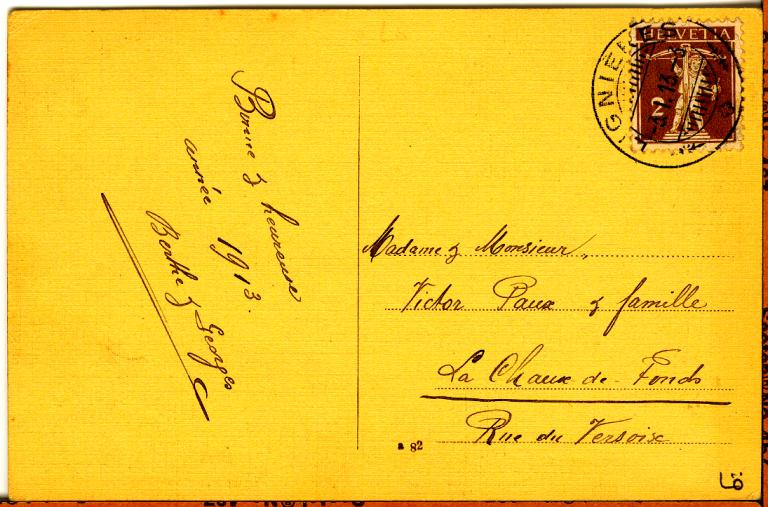 Bonne & heureuse
année 1913.
Berthe & Georges
HELVETIA
2
LIGNIERES
Madame & Monsieur,
Victor Paux & famille
La Chaux-de-Fonds
Rue du Versoix
82